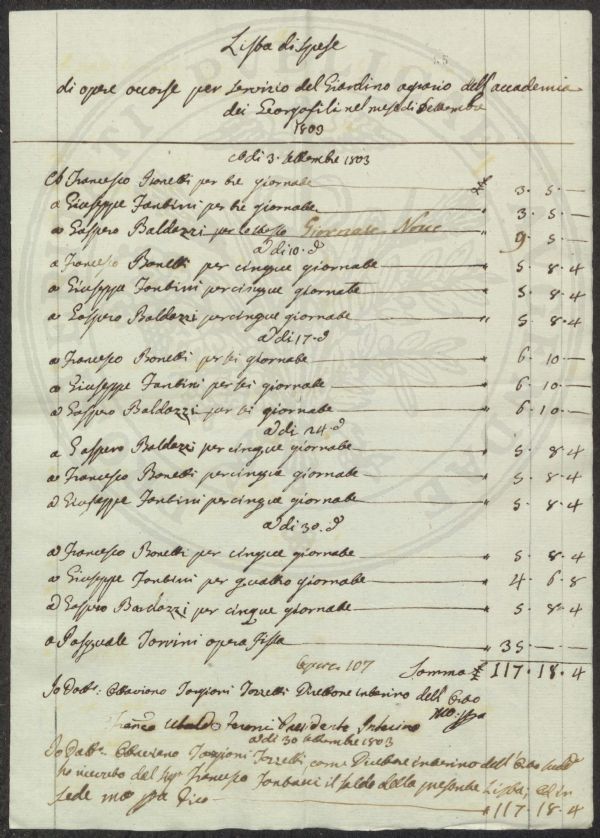 Lista di spese
di opere occorse per servizio del Giardino agrario dell'accademia
dei Georgofili nel mese di Settembre
1803
Ab di 3. Settembre 1803
Francesco Bonetti per tre giornate 3. 5. —
a Giuseppe Fantini per tre giornate " 3. 5. —
a Gaspero Baldazzi Giornate Nove " 9 5. —
a di 10. d
a Francesco Bonetti per cinque giornate " 5. 8. 4
a Giuseppe Fantini per cinque giornate " 5. 8. 4
a Gaspero Baldazzi per cinque giornate " 5. 8. 4
a di 17. d
a Francesco Bonetti per sei giornate " 6. 10 —
a Giuseppe Fantini per sei giornate " 6. 10. —
a Gaspero Baldazzi per sei giornate " 6. 10. —
a di 24. d
a Gaspero Baldazzi per cinque giornate " 5. 8. 4
a Francesco Bonetti per cinque giornate " 5. 8. 4
a Giuseppe Fantini per cinque giornate " 5. 8. 4
a di 30. d
a Francesco Bonetti per cinque giornate " 5. 8. 4
a Giuseppe Fantini per quattro giornate " 4. 6. 8
a Gaspero Bardazzi per cinque giornate " 5. 8. 4
a Pasquale Torrini opera fissa " 35 — —
opere 107 Somma 117. 18. 4
Io Dottr. Ottaviano Targioni Tozzetti Direttore interino dell' Orto
mo: ppa
Ubaldo Feroni Presidente Interino
a di 30 Settembre 1803
Io Dottr. Ottaviano Targioni Tozzetti, come Direttore interino dell' Orto
ho ricevuto dal Sigr. Francesco il saldo della presente Lista, ed in
fede mo ppa dico " 117. 18. 4